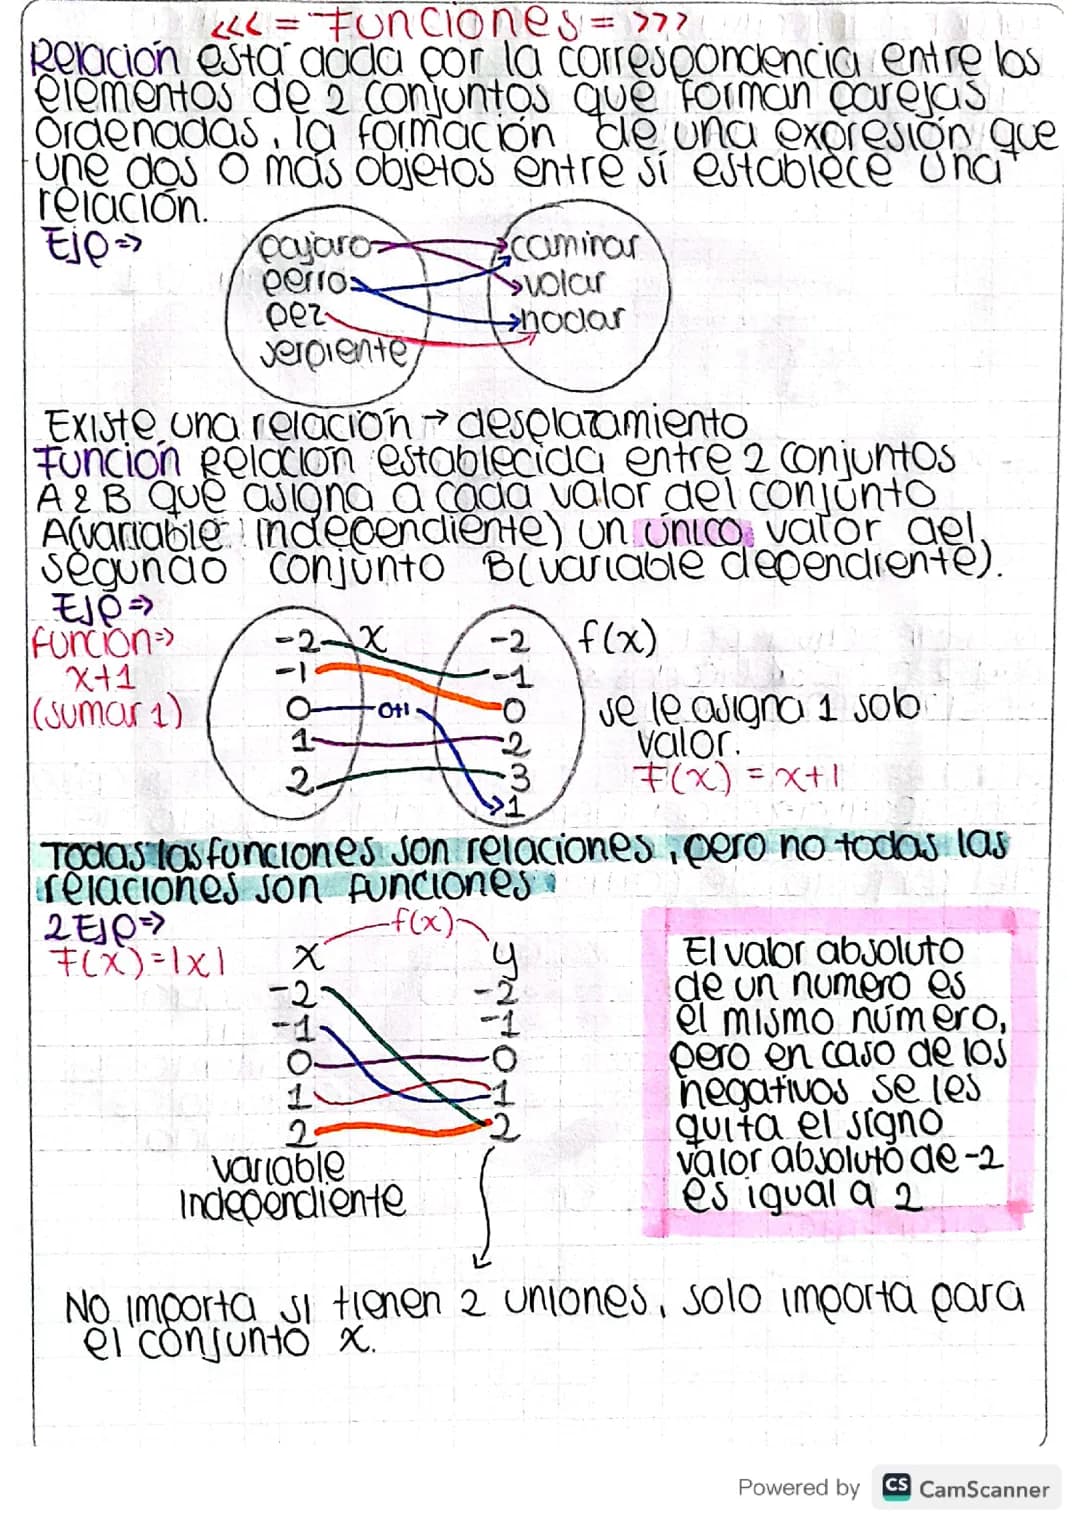 <<< = Funciones = >>>
Relación está dada por la correspondencia entre los
elementos de 2 conjuntos que forman parejas
ordenadas, la formación de una expresión que
une dos o más objetos entre sí establece una
relación.
Ejp =>
pajaro
perro
pez
serpiente
caminar
volar
nadar
Existe una relación → desplazamiento
Función Relación establecida entre 2 conjuntos
A & B que asigna a cada valor del conjunto
A (variable independiente) un único valor del
segundo conjunto B (variable dependiente).
Ejp =>
función =>
x+1
(sumar 1)
-2 x
-1
0 0+1
1
2
-2
-1
0
2
3
1
f(x)
se le asigna 1 solo
valor.
F(x) = x+1
Todas las funciones son relaciones, pero no todas las
relaciones son funciones
2 Ejp =>
F(x) = |x|
f(x)
x y
-2 -2
-1 -1
0 0
1 1
2 2
variable
Independiente
El valor absoluto
de un numero es
el mismo número,
pero en caso de los
negativos se les
quita el signo
valor absoluto de -2
es igual a 2
No importa si tienen 2 uniones, solo importa para
el conjunto x.
Powered by CS CamScanner